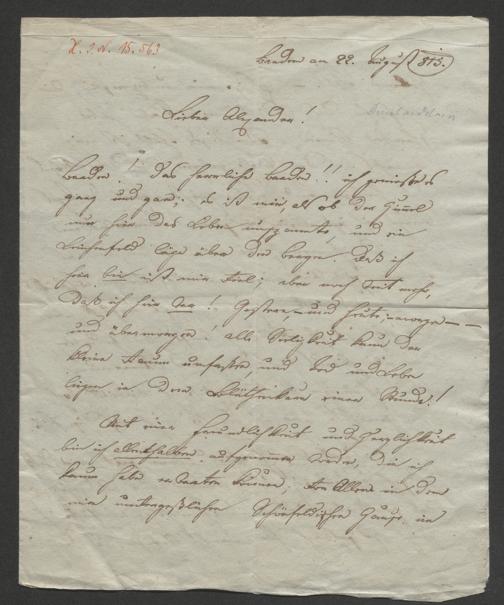 H. I. N. 15.563
Baaden am 22. August 815.
Lieber Alexander!
Baaden! Das herrliche Baaden!! ich genieße es
ganz und gar; es ist mir, als ob der Himmel
nur hier das Leben umspannte, und ein
Leichenfeld läge über den Bergen. Daß ich
hier bin ist mir viel; aber noch weit mehr,
Daß ich hier war! Gestern und heute, morgen
und übermorgen! alle Seligkeit kann der
kleine Raum umfassen, und Tod und Leben
liegen in dem Blüthenkranz einer Stunde!
Mit einer Freundlichkeit und Herzlichkeit
bin ich allenthalben aufgenommen worden, die ich
kaum habe erwarten können; vor Allem in dem
mir unvergeßlichen Schönfeldischen Hause, in